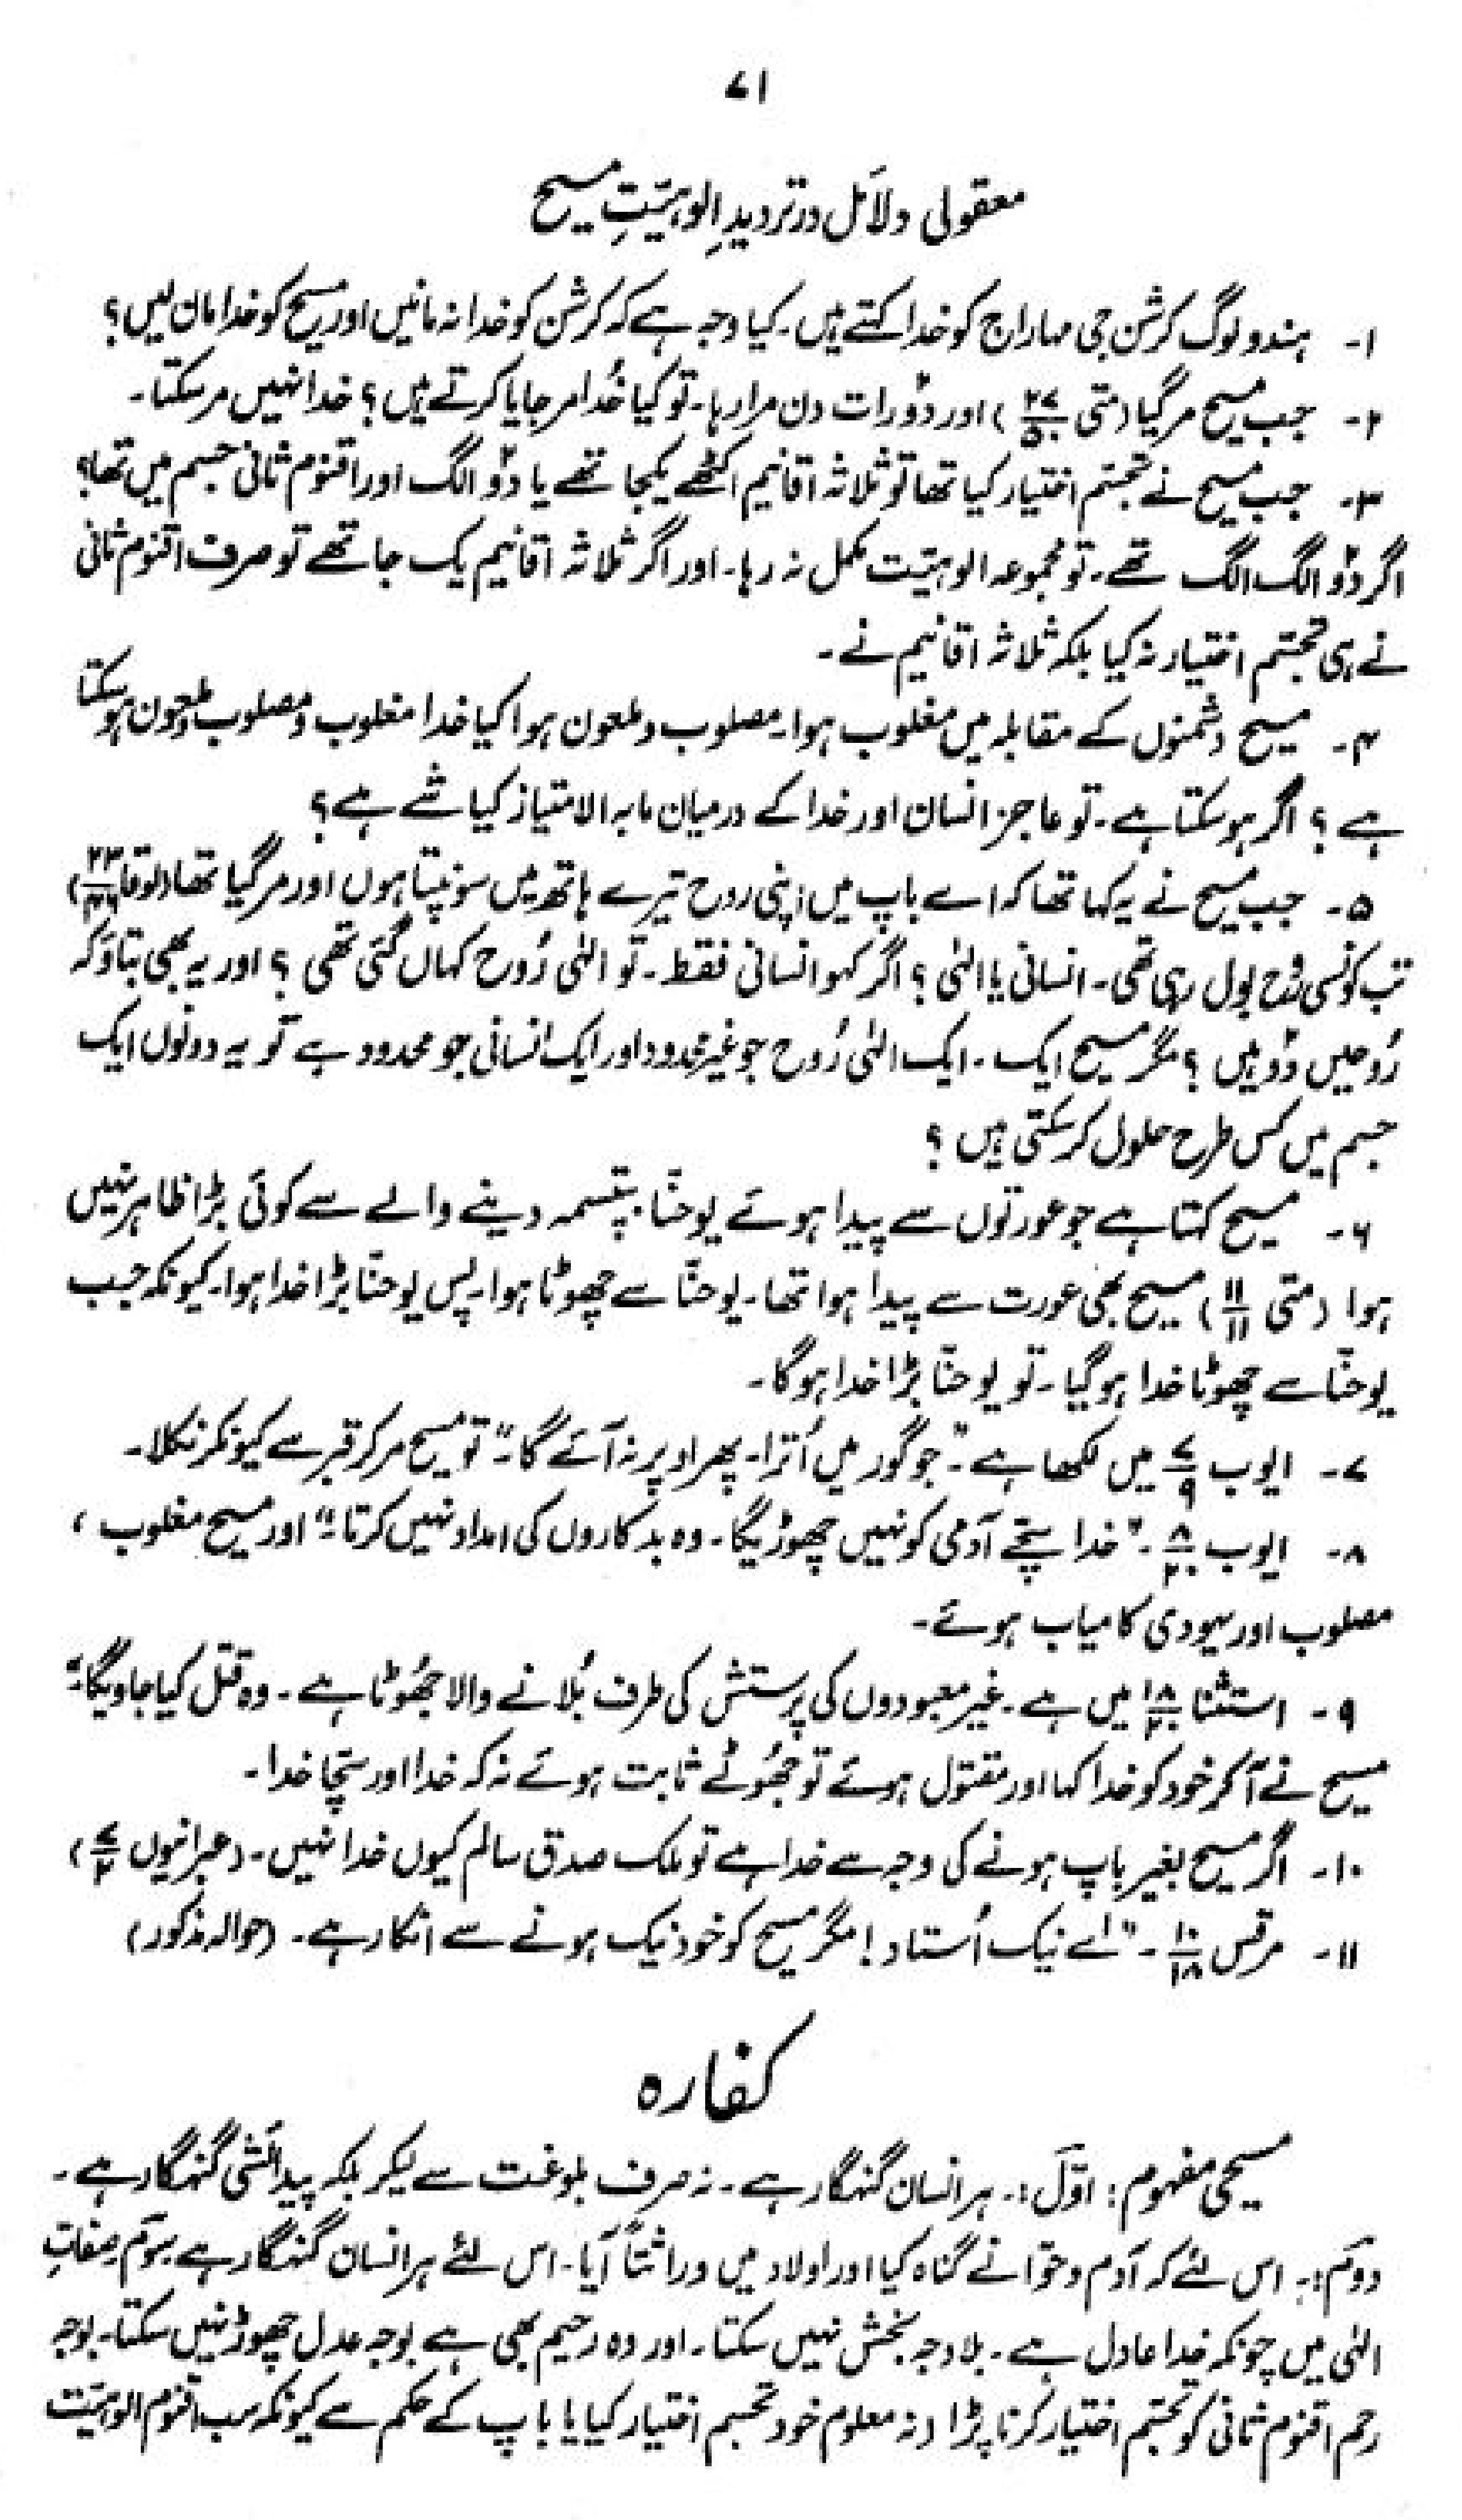 ۷۱
معقولی دلائل در تردیدِ الوہیّتِ مسیح
۱- ہندو لوگ کرشن جی مہاراج کو خدا کہتے ہیں۔ کیا وجہ ہے کہ کرشن کو خدا نہ مانیں اور مسیح کو خدا مان لیں؟
۲- جب مسیح مر گیا (متی ۲۷/۵۰) اور دوُ رات دن مرا رہا۔ تو کیا خُدا مر جایا کرتے ہیں؟ خدا نہیں مر سکتا۔
۳- جب مسیح نے تجسّم اختیار کیا تھا تو ثلاثہ اقانیم اکٹھے یکجا تھے یا دوُ الگ اور اقنوم ثانی جسم میں تھا؟
اگر دوُ الگ الگ تھے۔ تو مجموعہ الوہیّت مکمل نہ رہا۔ اور اگر ثلاثہ اقانیم یک جا تھے تو صرف اقنوم ثانی
نے ہی تجسّم اختیار نہ کیا بلکہ ثلاثہ اقانیم نے۔
۴- مسیح دشمنوں کے مقابلہ میں مغلوب ہوا۔ مصلوب و ملعون ہوا کیا خدا مغلوب و مصلوب و ملعون ہو سکتا
ہے؟ اگر ہو سکتا ہے۔ تو عاجز انسان اور خدا کے درمیان مابہ الامتیاز کیا شے ہے؟
۵- جب مسیح نے یہ کہا تھا کہ اے باپ میں اپنی روح تیرے ہاتھ میں سونپتا ہوں اور مر گیا تھا (لوقا ۲۳/۴۶)
تب کونسی رُوح بول رہی تھی۔ انسانی یا الٰہی؟ اگر کہو انسانی فقط۔ تو الٰہی رُوح کہاں گئی تھی؟ اور یہ بھی بتاؤ کہ
رُوحیں دوُ ہیں؟ مگر مسیح ایک۔ ایک الٰہی رُوح جو غیر محدود اور ایک انسانی جو محدود ہے تو یہ دونوں ایک
جسم میں کس طرح حلول کر سکتی ہیں؟
۶- مسیح کہتا ہے جو عورتوں سے پیدا ہوئے یوحنّا بپتسمہ دینے والے سے کوئی بڑا ظاہر نہیں
ہوا (متی ۱۱/۱۱) مسیح بھی عورت سے پیدا ہوا تھا۔ یوحنّا سے چھوٹا ہوا۔ پس یوحنّا بڑا خدا ہوا۔ کیونکہ جب
یوحنّا سے چھوٹا خدا ہو گیا۔ تو یوحنّا بڑا خدا ہوگا۔
۷- ایوب ۷/۹ میں لکھا ہے۔ "جو گور میں اُترا۔ پھر اوپر نہ آئے گا۔" تو مسیح مر کر قبر سے کیونکر نکلا۔
۸- ایوب ۸/۲۰۔ "خدا سچّے آدمی کو نہیں چھوڑیگا۔ وہ بدکاروں کی امداد نہیں کرتا۔" اور مسیح مغلوب،
مصلوب اور یہودی کامیاب ہوئے۔
۹- استثنا ۱۸/۲۰ میں ہے۔ غیر معبودوں کی پرستش کی طرف بُلانے والا جھُوٹا ہے۔ وہ قتل کیا جاویگا۔"
مسیح نے آکر خود کو خدا کہا اور مقتول ہوئے تو جھُوٹے ثابت ہوئے نہ کہ خدا اور سچّا خدا۔
۱۰- اگر مسیح بغیر باپ ہونے کی وجہ سے خدا ہے تو ملک صدق سالم کیوں خدا نہیں۔ (عبرانیوں ۷/۲)
۱۱- مرقس ۱۰/۱۸۔ "اے نیک اُستاد! مگر مسیح کو خود نیک ہونے سے انکار ہے۔ (حوالہ مذکور)
کفارہ
مسیحی مفہوم: اوّل:۔ ہر انسان گنہگار ہے۔ نہ صرف بلوغت سے لیکر بلکہ پیدائشی گنہگار ہے۔
دوم:۔ اس لئے کہ آدم و حوّا نے گناہ کیا اور اولاد میں وراثتاً آیا۔ اس لئے ہر انسان گنہگار ہے سوم صفاتِ
الٰہی میں چونکہ خدا عادل ہے۔ بلاوجہ بخش نہیں سکتا۔ اور وہ رحیم بھی ہے بوجہ عدل چھوڑ نہیں سکتا۔ بوجہ
رحم اقنوم ثانی کو تجسّم اختیار کرنا پڑا (نہ معلوم خود تجسم اختیار کیا یا باپ کے حکم سے کیونکہ سب اقنوم الوہیّت